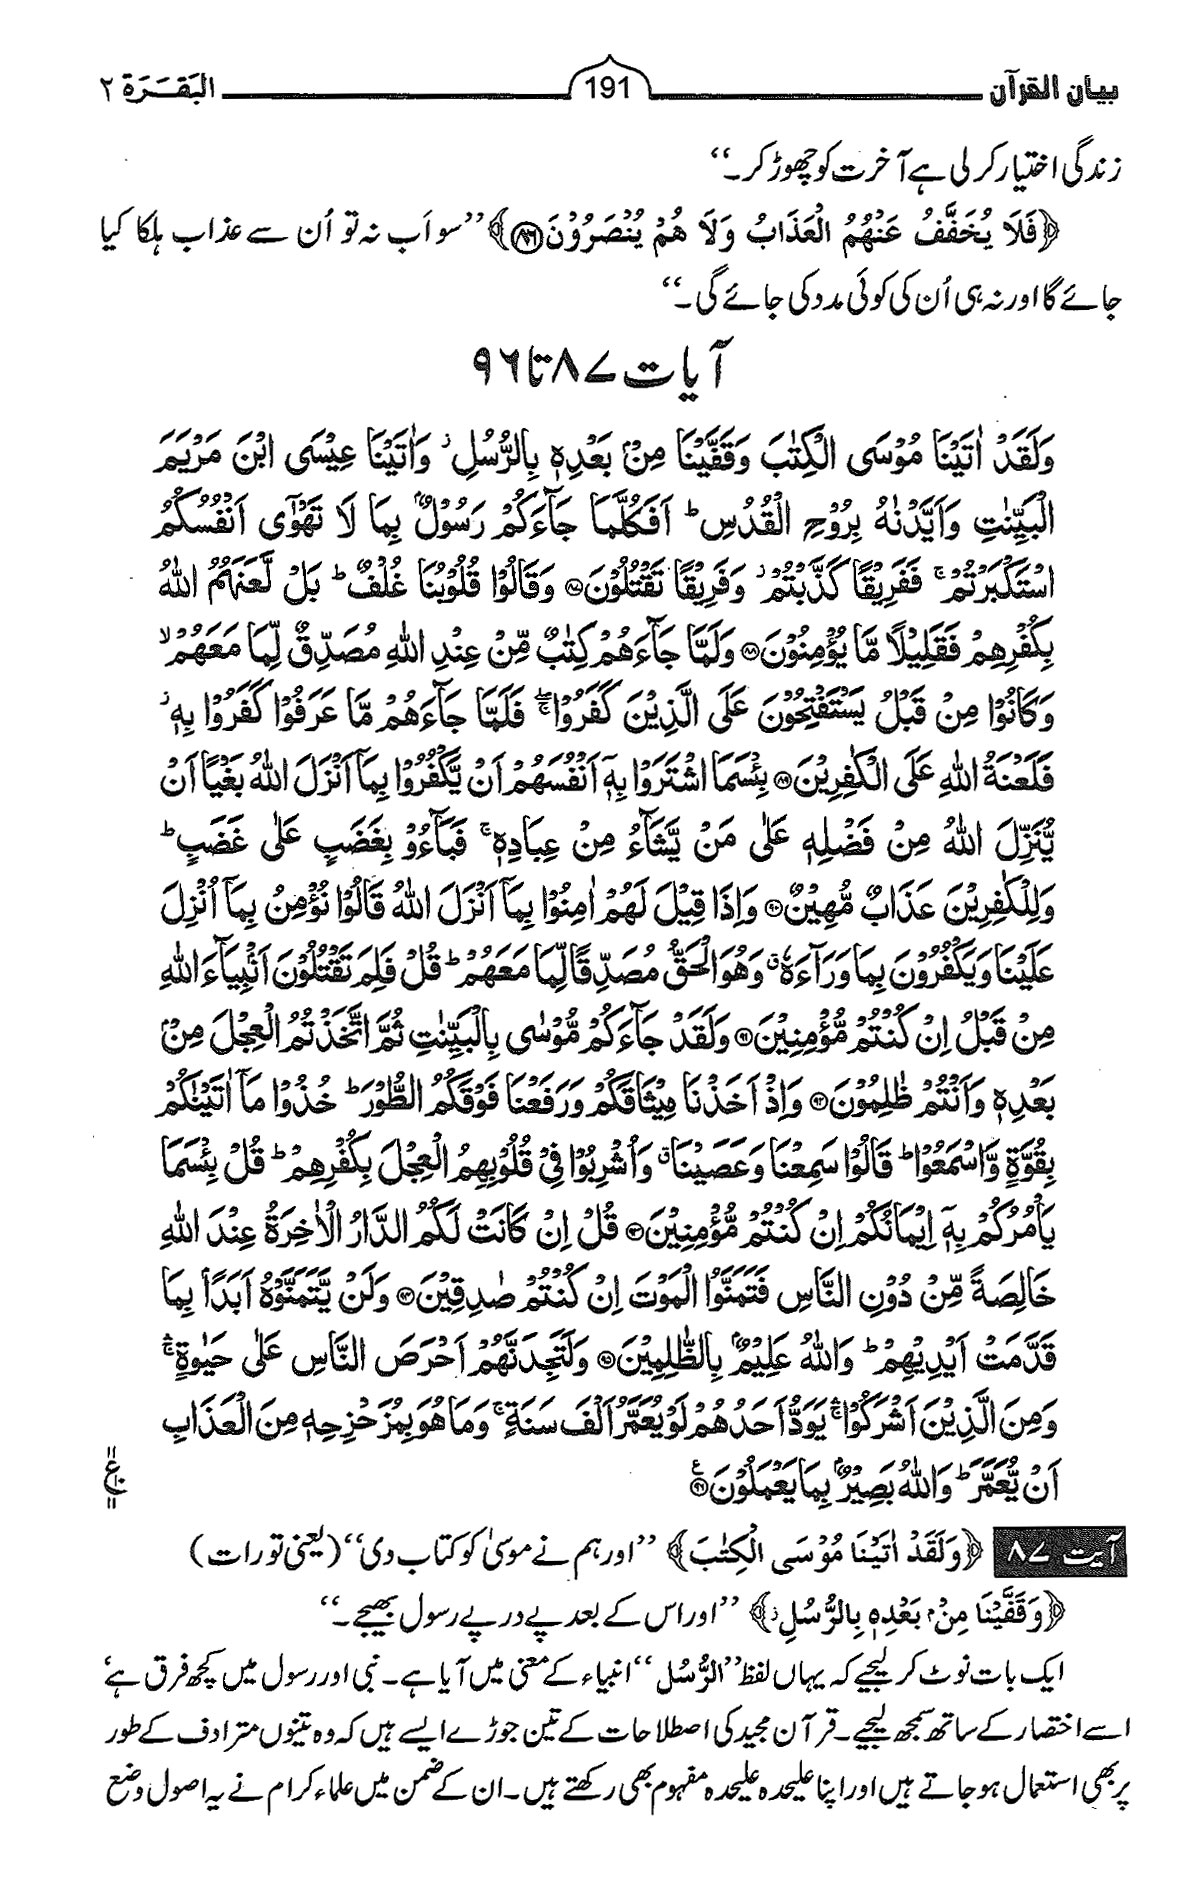 بیان القرآن 191 البَقَرَة ۲
زندگی اختیار کر لی ہے آخرت کو چھوڑ کر۔‘‘
﴿فَلَا يُخَفَّفُ عَنْهُمُ الْعَذَابُ وَلَا هُمْ يُنْصَرُوْنَ۝۸۶﴾ ’’سو اَب نہ تو اُن سے عذاب ہلکا کیا
جائے گا اور نہ ہی اُن کی کوئی مدد کی جائے گی۔‘‘
آیات ۸۷ تا ۹۶
وَلَقَدْ اٰتَيْنَا مُوْسَى الْكِتٰبَ وَقَفَّيْنَا مِنْۢ بَعْدِهٖ بِالرُّسُلِ ۡ وَاٰتَيْنَا عِيْسَى ابْنَ مَرْيَمَ
الْبَيِّنٰتِ وَاَيَّدْنٰهُ بِرُوْحِ الْقُدُسِ ؕ اَفَكُلَّمَا جَآءَكُمْ رَسُوْلٌۢ بِمَا لَا تَهْوٰٓى اَنْفُسُكُمُ
اسْتَكْبَرْتُمْ ۚ فَفَرِيْقًا كَذَّبْتُمْ ۡ وَفَرِيْقًا تَقْتُلُوْنَ۝۸۷ وَقَالُوْا قُلُوْبُنَا غُلْفٌ ؕ بَلْ لَّعَنَهُمُ اللّٰهُ
بِكُفْرِهِمْ فَقَلِيْلًا مَّا يُؤْمِنُوْنَ۝۸۸ وَلَمَّا جَآءَهُمْ كِتٰبٌ مِّنْ عِنْدِ اللّٰهِ مُصَدِّقٌ لِّمَا مَعَهُمْ ۙ
وَكَانُوْا مِنْ قَبْلُ يَسْتَفْتِحُوْنَ عَلَى الَّذِيْنَ كَفَرُوْا ۚ فَلَمَّا جَآءَهُمْ مَّا عَرَفُوْا كَفَرُوْا بِهٖ ۡ
فَلَعْنَةُ اللّٰهِ عَلَى الْكٰفِرِيْنَ۝۸۹ بِئْسَمَا اشْتَرَوْا بِهٖٓ اَنْفُسَهُمْ اَنْ يَّكْفُرُوْا بِمَآ اَنْزَلَ اللّٰهُ بَغْيًا اَنْ
يُّنَزِّلَ اللّٰهُ مِنْ فَضْلِهٖ عَلٰى مَنْ يَّشَآءُ مِنْ عِبَادِهٖ ۚ فَبَآءُوْ بِغَضَبٍ عَلٰى غَضَبٍ ؕ
وَلِلْكٰفِرِيْنَ عَذَابٌ مُّهِيْنٌ۝۹۰ وَاِذَا قِيْلَ لَهُمْ اٰمِنُوْا بِمَآ اَنْزَلَ اللّٰهُ قَالُوْا نُؤْمِنُ بِمَآ اُنْزِلَ
عَلَيْنَا وَيَكْفُرُوْنَ بِمَا وَرَآءَهٗ ۤ وَهُوَ الْحَقُّ مُصَدِّقًا لِّمَا مَعَهُمْ ؕ قُلْ فَلِمَ تَقْتُلُوْنَ اَنْۢبِيَآءَ اللّٰهِ
مِنْ قَبْلُ اِنْ كُنْتُمْ مُّؤْمِنِيْنَ۝۹۱ وَلَقَدْ جَآءَكُمْ مُّوْسٰى بِالْبَيِّنٰتِ ثُمَّ اتَّخَذْتُمُ الْعِجْلَ مِنْۢ
بَعْدِهٖ وَاَنْتُمْ ظٰلِمُوْنَ۝۹۲ وَاِذْ اَخَذْنَا مِيْثَاقَكُمْ وَرَفَعْنَا فَوْقَكُمُ الطُّوْرَ ؕ خُذُوْا مَآ اٰتَيْنٰكُمْ
بِقُوَّةٍ وَّاسْمَعُوْا ؕ قَالُوْا سَمِعْنَا وَعَصَيْنَا ۤ وَاُشْرِبُوْا فِيْ قُلُوْبِهِمُ الْعِجْلَ بِكُفْرِهِمْ ؕ قُلْ بِئْسَمَا
يَاْمُرُكُمْ بِهٖٓ اِيْمَانُكُمْ اِنْ كُنْتُمْ مُّؤْمِنِيْنَ۝۹۳ قُلْ اِنْ كَانَتْ لَكُمُ الدَّارُ الْاٰخِرَةُ عِنْدَ اللّٰهِ
خَالِصَةً مِّنْ دُوْنِ النَّاسِ فَتَمَنَّوُا الْمَوْتَ اِنْ كُنْتُمْ صٰدِقِيْنَ۝۹۴ وَلَنْ يَّتَمَنَّوْهُ اَبَدًۢا بِمَا
قَدَّمَتْ اَيْدِيْهِمْ ؕ وَاللّٰهُ عَلِيْمٌۢ بِالظّٰلِمِيْنَ۝۹۵ وَلَتَجِدَنَّهُمْ اَحْرَصَ النَّاسِ عَلٰى حَيٰوةٍ ۛۚ
وَمِنَ الَّذِيْنَ اَشْرَكُوْا ۛۚ يَوَدُّ اَحَدُهُمْ لَوْ يُعَمَّرُ اَلْفَ سَنَةٍ ۚ وَمَا هُوَ بِمُزَحْزِحِهٖ مِنَ الْعَذَابِ
اَنْ يُّعَمَّرَ ؕ وَاللّٰهُ بَصِيْرٌۢ بِمَا يَعْمَلُوْنَ۝۹۶
آیت ۸۷ ﴿وَلَقَدْ اٰتَيْنَا مُوْسَى الْكِتٰبَ﴾ ’’اور ہم نے موسیٰ کو کتاب دی‘‘ (یعنی تورات)
﴿وَقَفَّيْنَا مِنْۢ بَعْدِهٖ بِالرُّسُلِ ۡ﴾ ’’اور اس کے بعد پے در پے رسول بھیجے۔‘‘
ایک بات نوٹ کر لیجیے کہ یہاں لفظ ’’الرُّسُل‘‘ انبیاء کے معنی میں آیا ہے۔ نبی اور رسول میں کچھ فرق ہے‘
اسے اختصار کے ساتھ سمجھ لیجیے۔ قرآن مجید کی اصطلاحات کے تین جوڑے ایسے ہیں کہ وہ تینوں مترادف کے طور
پر بھی استعمال ہو جاتے ہیں اور اپنا علیحدہ علیحدہ مفہوم بھی رکھتے ہیں۔ ان کے ضمن میں علماء کرام نے یہ اصول وضع